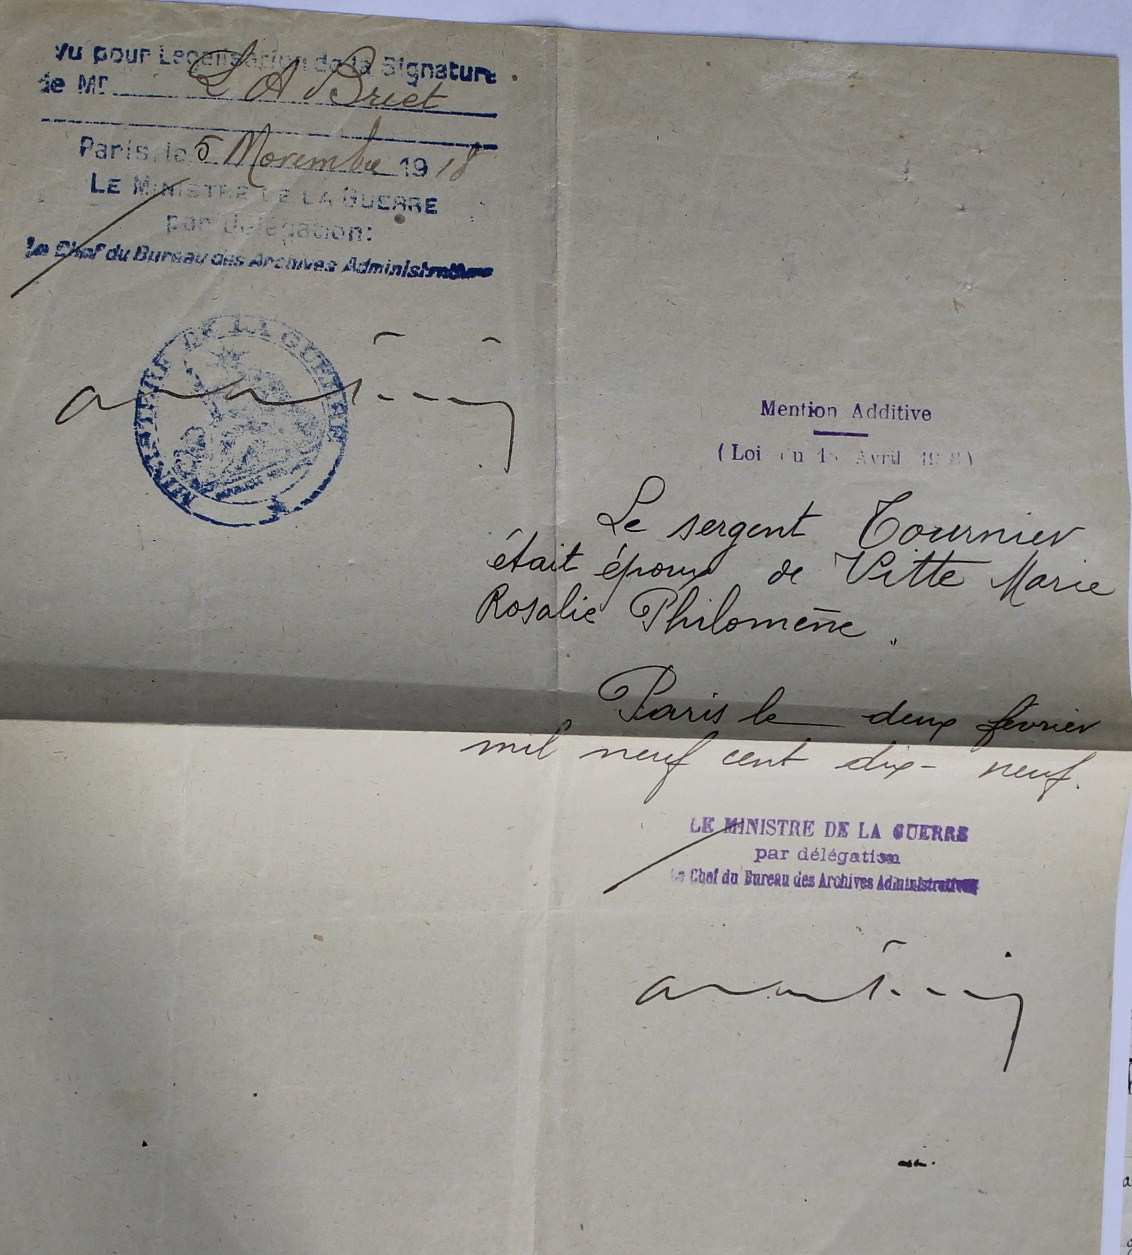 Vu pour Legalisation de la Signature
de Mr L A Briet
Paris, le 5 Novembre 1918
LE MINISTRE DE LA GUERRE
par délégation:
Le Chef du Bureau des Archives Administratives
MINISTERE DE LA GUERRE
Mention Additive
(Loi du Avril)
Le sergent Tournier
était époux de Vitte Marie
Rosalie Philomène.
Paris le deux février
mil neuf cent dix-neuf.
LE MINISTRE DE LA GUERRE
par délégation
Le Chef du Bureau des Archives Administratives